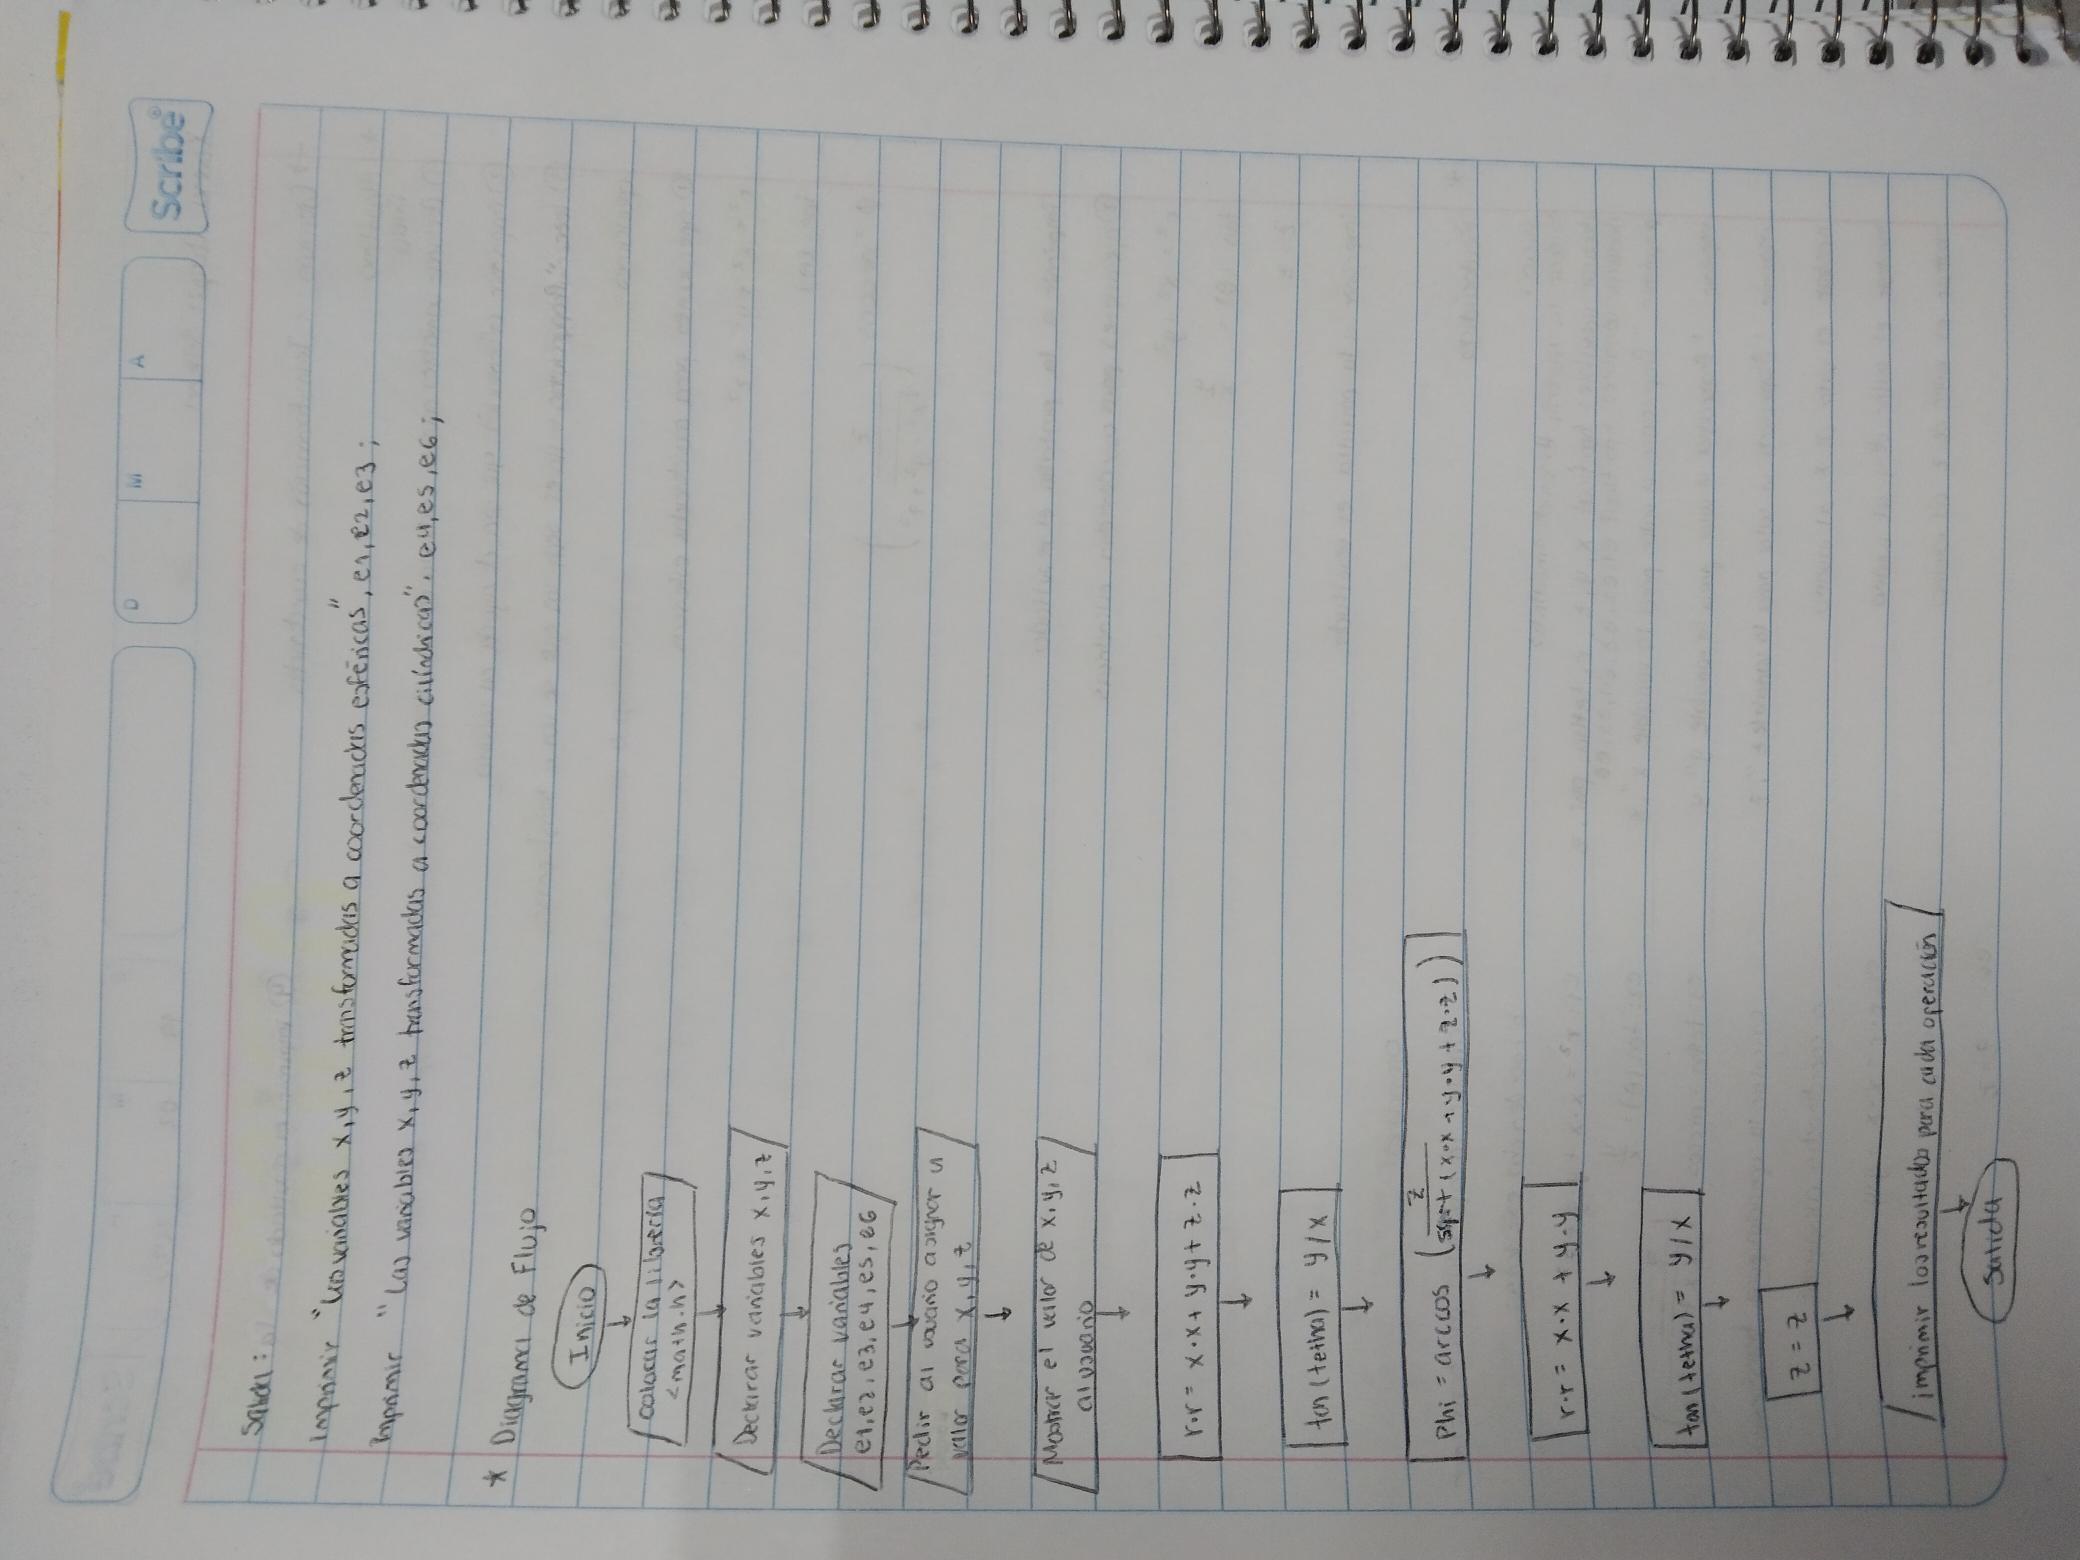 Scribe®
D M A
Salida:
Imprimir "las variables x,y,z transformadas a coordenadas esféricas", e1,e2,e3;
Imprimir "las variables x,y,z transformadas a coordenadas cilíndricas", e4,e5,e6;
* Diagrama de Flujo
Inicio
colocar la librería
<math.h>
Declarar variables x,y,z
Declarar variables
e1,e2,e3,e4,e5,e6
Pedir al usuario asignar un
valor para x,y,z
Mostrar el valor de x,y,z
al usuario
r·r = x·x + y·y + z·z
tan(tetha) = y/x
Phi = arccos (z / sqrt(x·x + y·y + z·z)))
r·r = x·x + y·y
tan(tetha) = y/x
z = z
imprimir los resultados para cada operación
Salida